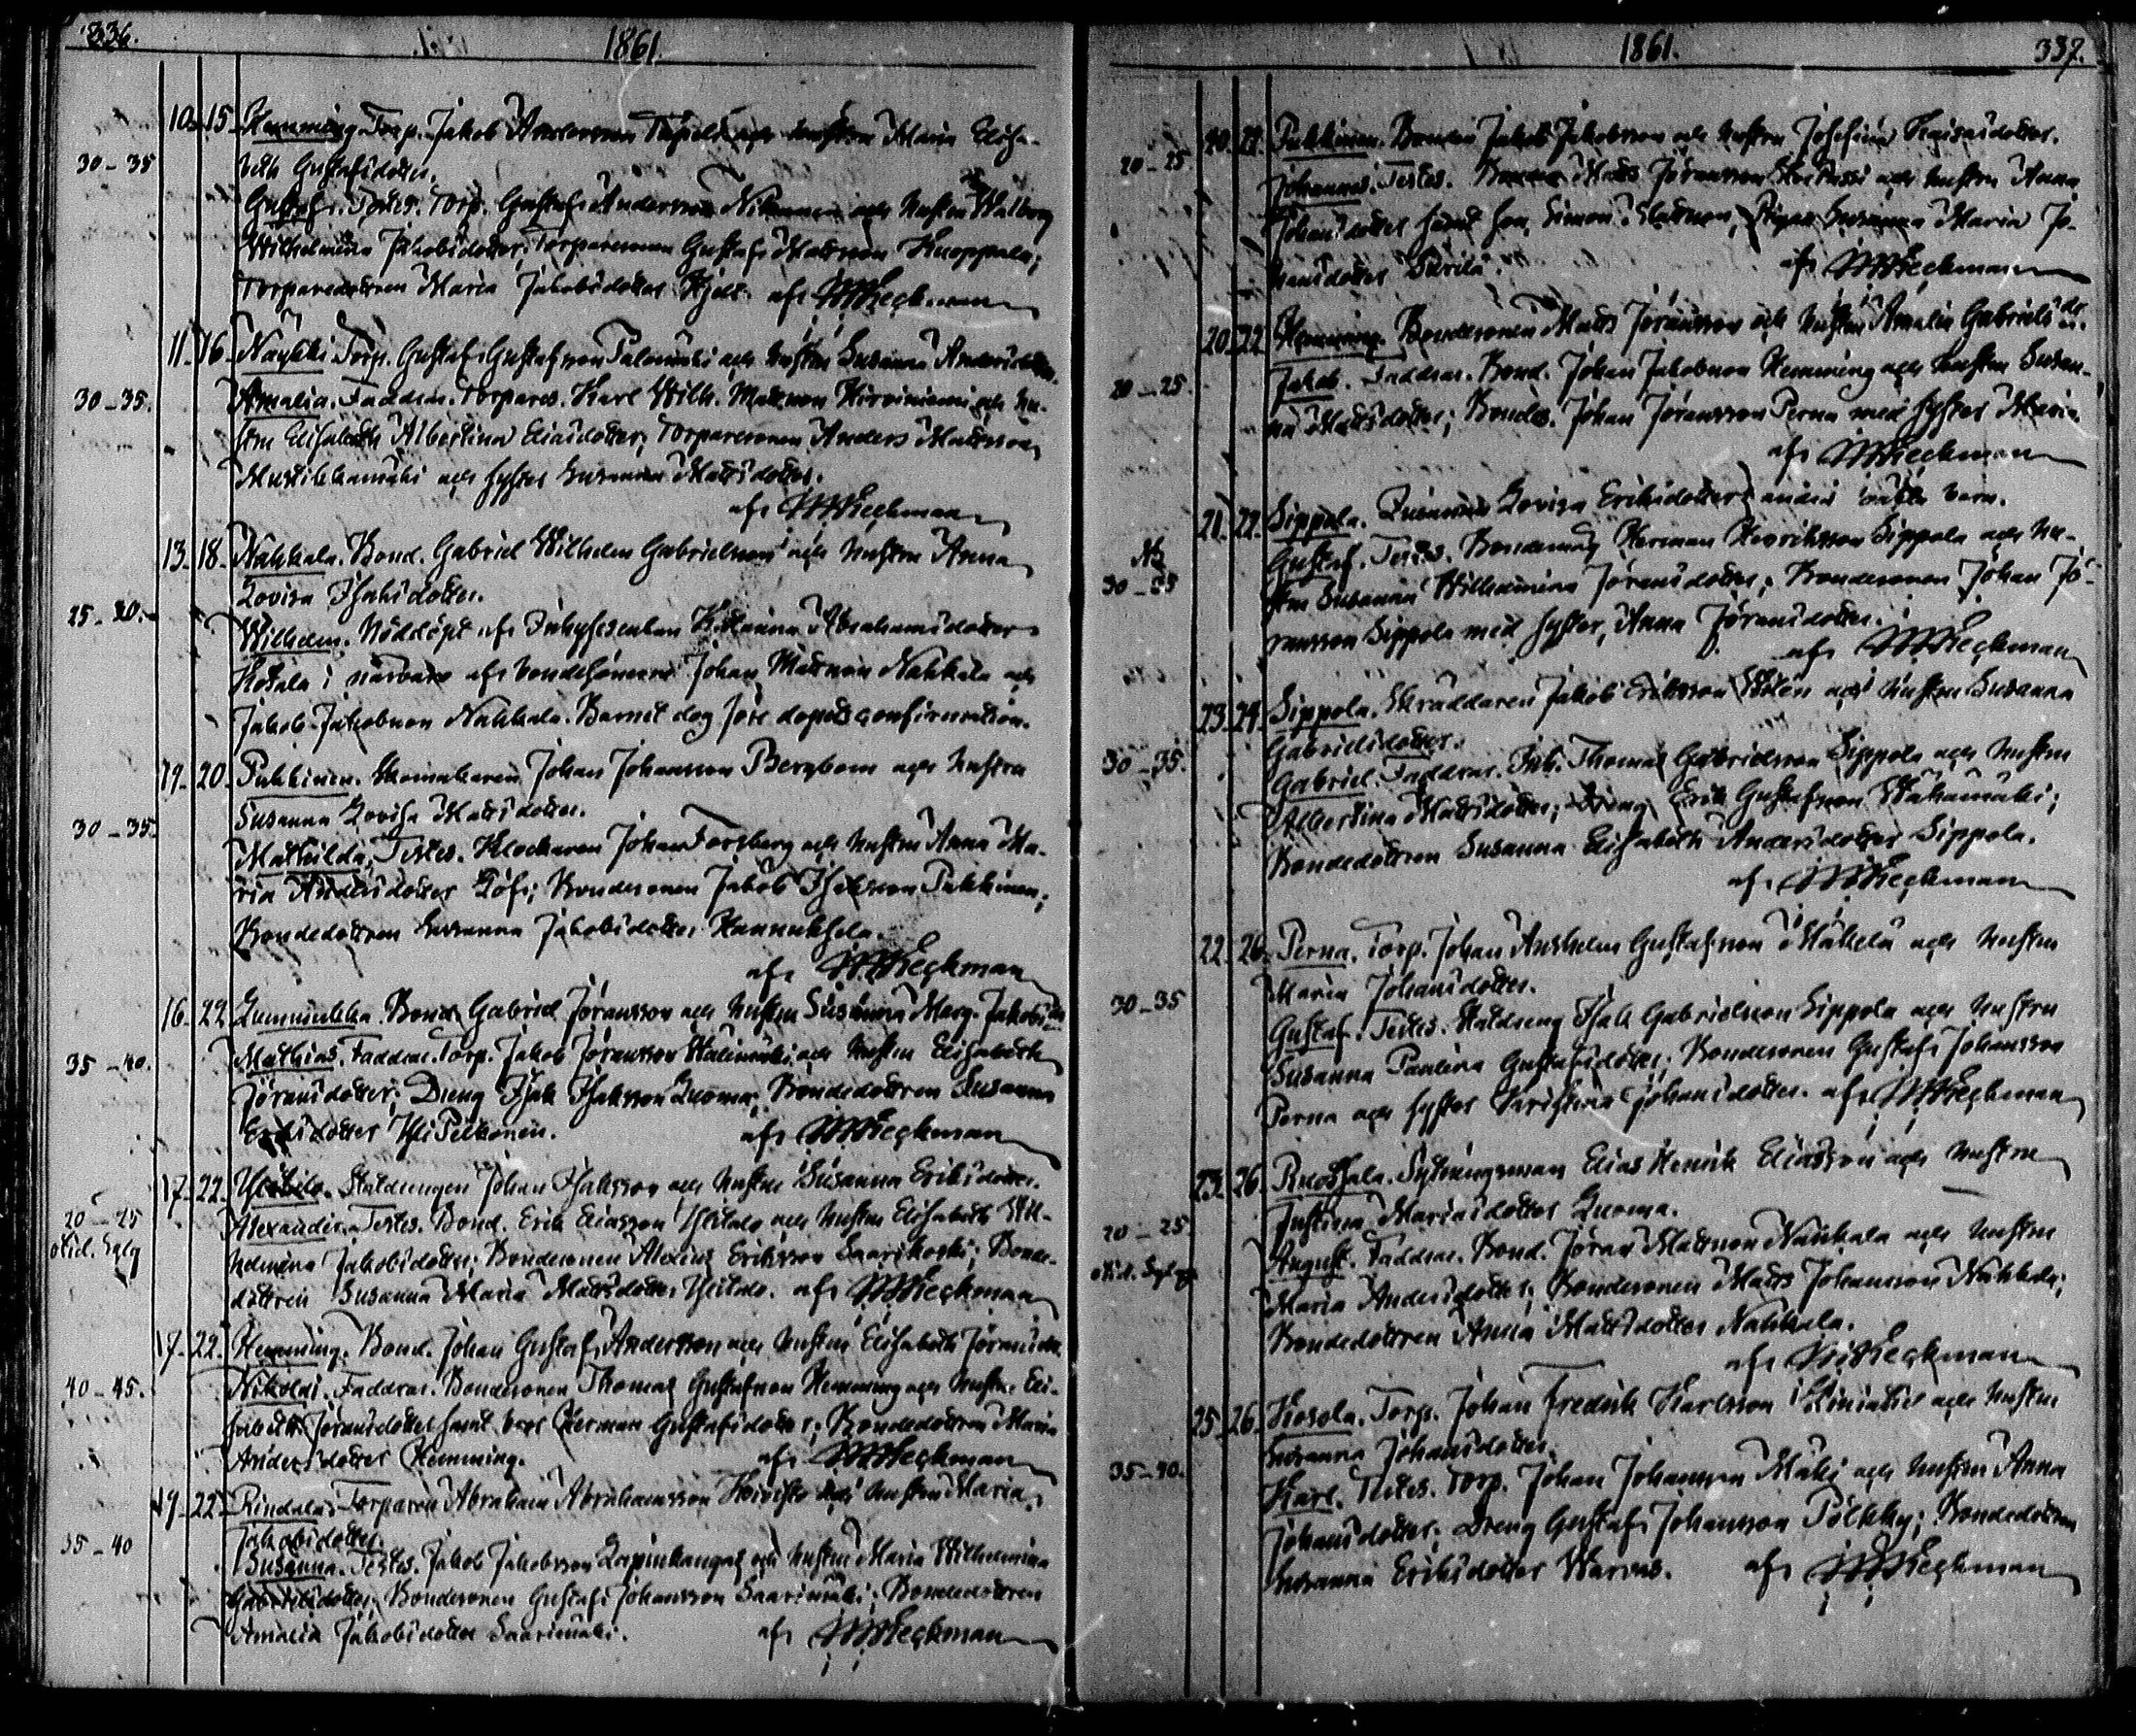 336.
1861.
10. 15. Hemming. Torp. Jakob Andersson och hustru Maria Elisa-
30-35 beth Gustafsdotter.
Gustaf. Testes. Torp. Gustaf Andersson och hustru Walborg
Wilhelmina Jakobsdotter; Torparesonen Gustaf Mattsson Knoppala;
Torparedottren Maria Jakobsdotter af WWegkman
11. 16. Torp. Gustaf Gustafsson Palomäki och hustru Susanna Andersdotter.
30-35. Amalia. Faddrar. Torpares. Karl Wilh. Mattsson Hirviniemi och hu-
stru Elisabeth Albertina Eliasdotter; Torparesonen Anders Mattsson
Mustikkamäki och syster Susanna Mattsdotter.
af WWegkman
13. 18. Nahkala. Bond. Gabriel Wilhelm Gabrielsson och hustru Anna
Lovisa Isaksdotter.
Wilhelm. Nöddöpt af Inhyseenkan Abrahamsdotter
Kosola i närvaro af bondesönerne Johan Mattsson Nahkala och
Jakob Jakobsson Nahkala. Barnet dog före dopets confirmation.
20. Pukkinen. Skomakaren Johan Johansson Bergbom och hustru
Susanna Lovisa Mattsdotter.
30-35. Mathilda. Testes. Klockaren Johan Forsberg och hustru Anna Ma-
ria Andersdotter Löf; Bondesonen Jakob Isaksson Pukkinen;
Bondedottren Susanna Jakobsdotter Hannuksela.
af WWegkman
16. 22. Bond. Gabriel Jöransson och hustru Susanna Marg. Jakobsdr
35-40. Mathias. Faddrar. Torp. Jakob Jöransson och hustru Elisabeth
Jöransdotter; Dreng Isak Isaksson Luoma; Bondedottren Susanna
Eriksdotter Yli Pelkonen. af WWegkman
17. 22. Ylitalo. Staldrengen Johan Isaksson och hustru Susanna Eriksdotter.
20-25 Alexander. Testes. Bond. Erik Eliasson Ylitalo och hustru Elisabeth Wil-
helmina Jakobsdotter; Bondesonen Alexius Eriksson Saarikoski; Bonde-
dottren Susanna Maria Mattsdotter Ylitalo. af WWegkman
17. 22. Hemming. Bond. Johan Gustaf Andersson och hustru Elisabeth Jöransdr.
40-45. Nikolai. Faddrar. Bondesonen Thomas Gustafsson Hemming och hustru Eli-
sabeth Jöransdotter samt Gustafsdotter; Bondedottren Maria
Andersdotter Hemming. af WWegkman
19. 22. Rindala. Torparen Abraham Abrahamsson Koivisto och hustru Maria
Jakobsdotter.
35-40 Susanna. Testes. Jakob Jakobsson Lapinkangas och hustru Maria Wilhelmina
Gabrielsdotter; Bondesonen Gustaf Johansson Saarimäki; Bondedottren
Amalia Jakobsdotter Saarimäki. af WWegkman
1861.
337.
Pukkinen. Bonden Jakob Jakobsson och hustru Josefina Kaisasdotter.
20-25 Johannes. Testes. Bonden Matts Jöransson och hustru Anna
Johansdotter samt Simon Mattsson, Pigan Susanna Maria Jo-
hansdotter Purila. af WWegkman
20. 22. Hemming. Bondesonen Matts Jöransson och hustru Amalia Gabrielsdr.
20-25. Jakob. Faddrar. Bond. Johan Jakobsson Hemming och hustru Susan-
na Mattsdotter; Bondes. Johan Jöransson Perna med syster Maria
af WWegkman
21. 22. Sippola. Lovisa Eriksdotters andra oäkta barn.
Gustaf. Testes. Bondemåg Herman Henriksson Sippola och hu-
30-35 stru Susanna Wilhelmina Jöransdotter; Bondesonen Johan Jö-
ransson Sippola med syster, Anna Jöransdotter.
af WWegkman
23. 24. Sippola. Skräddaren Jakob Eriksson och hustru Susanna
Gabrielsdotter.
30-35. Gabriel. Faddrar. Inh. Thomas Gabrielsson Sippola och hustru
Albertina Mattsdotter; Dreng Erik Gustafsson Wähämäki;
Bondedottren Susanna Elisabeth Andersdotter Sippola.
af WWegkman
22. 26. Perna. Torp. Johan Anshelm Gustafsson Mäkelä och hustru
Maria Johansdotter.
30-35 Gustaf. Testes. Staldreng Isak Gabrielsson Sippola och hustru
Susanna Paulina Gustafsdotter; Bondesonen Gustaf Johansson
Perna och syster Kristina Johansdotter. af WWegkman
23. 26. Ruotsala. Sytningsman Elias Henrik Eliasson och hustru
Justina Mariasdotter Luoma.
20-25 August. Faddrar. Bond. Jöran Mattsson Nahkala och hustru
Maria Andersdotter; Bondesonen Matts Johansson Nahkala;
Bondedottren Anna Mattsdotter Nahkala.
af WWegkman
25. 26. Kosola. Torp. Johan Fredrik Karlsson och hustru
Susanna Johansdotter.
35-40. Karl. Testes. Torp. Johan Johansson Mäki och hustru Anna
Johansdotter; Dreng Gustaf Johansson Pölkky; Bondedottren
Susanna Eriksdotter Warvas. af WWegkman